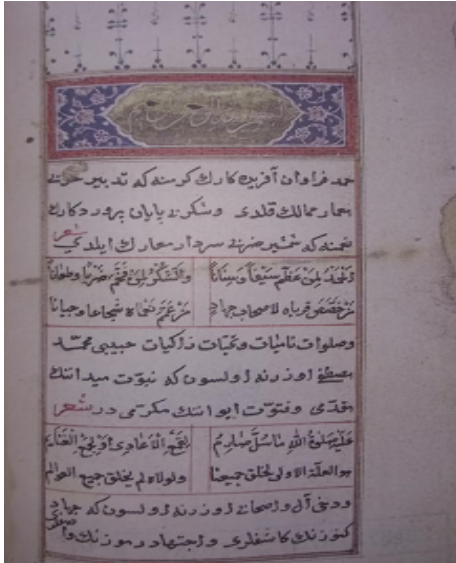 حمد فراوان آفریده کارك كوسنه كه تدبير
معمار ممالك قلدى و شكر بى پايان پروردكارك
كه شمشير ضربنى سردار معارك ايلدى شعر
والحمد لمن عظم سيفا وسنانا والشكر لمن فخم ضربا وطعانا
لاصحاب جهاد شجاعا وجبانا
وصلوات ناميات و تحيات زاكيات حبيبى محمد
مصطفى اوزرنه اولسون كه نبوت ميداننك
مقدمى و فتوت ايواننك مكرمى در شعر
عليه صلوة الله ما سل صارم لقمع الاعادى او لجمع الغنايم
هو العلة الاولى لخلق جميعنا ولولاه لم يخلق جميع العوالم
ودخى آل و اصحابى اوزرنه اولسون كه جهاد
كنوزنك كاشفلرى و اجتهاد رموزنك